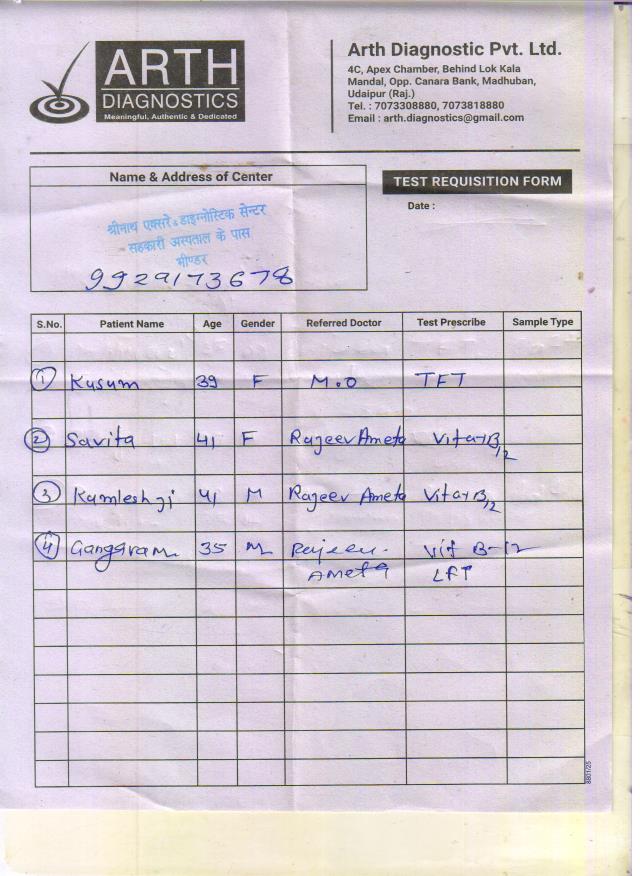 ARTH
DIAGNOSTICS
Meaningful, Authentic & Dedicated
Arth Diagnostic Pvt. Ltd.
4C, Apex Chamber, Behind Lok Kala
Mandal, Opp. Canara Bank, Madhuban,
Udaipur (Raj.)
Tel. : 7073308880, 7073818880
Email : arth.diagnostics@gmail.com
Name & Address of Center
TEST REQUISITION FORM
Date :
श्रीनाथ एक्सरे & डाइग्नोस्टिक सेन्टर
सहकारी अस्पताल के पास
भीण्डर
9929173678
S.No. Patient Name Age Gender Referred Doctor Test Prescribe Sample Type
1 Kusum 39 F M.O TFT
2 Savita 41 F Rajeev Ameta Vita-B12
3 Kamlesh ji 41 M Rajeev Ameta Vita-B12
4 Gangaram 35 M Rajeev Vit B-12
Ameta LFT
8801/25